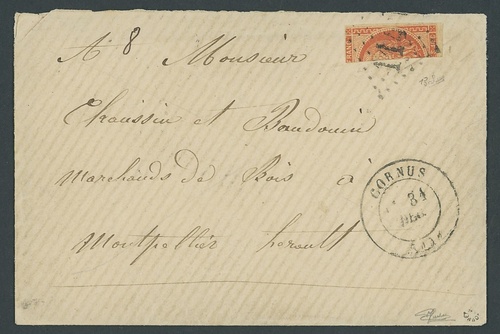 A 8 Monsieur
Chaussin et Baudouin
Marchands de Bois à
Montpellier herault
CORNUS
31
DEC.